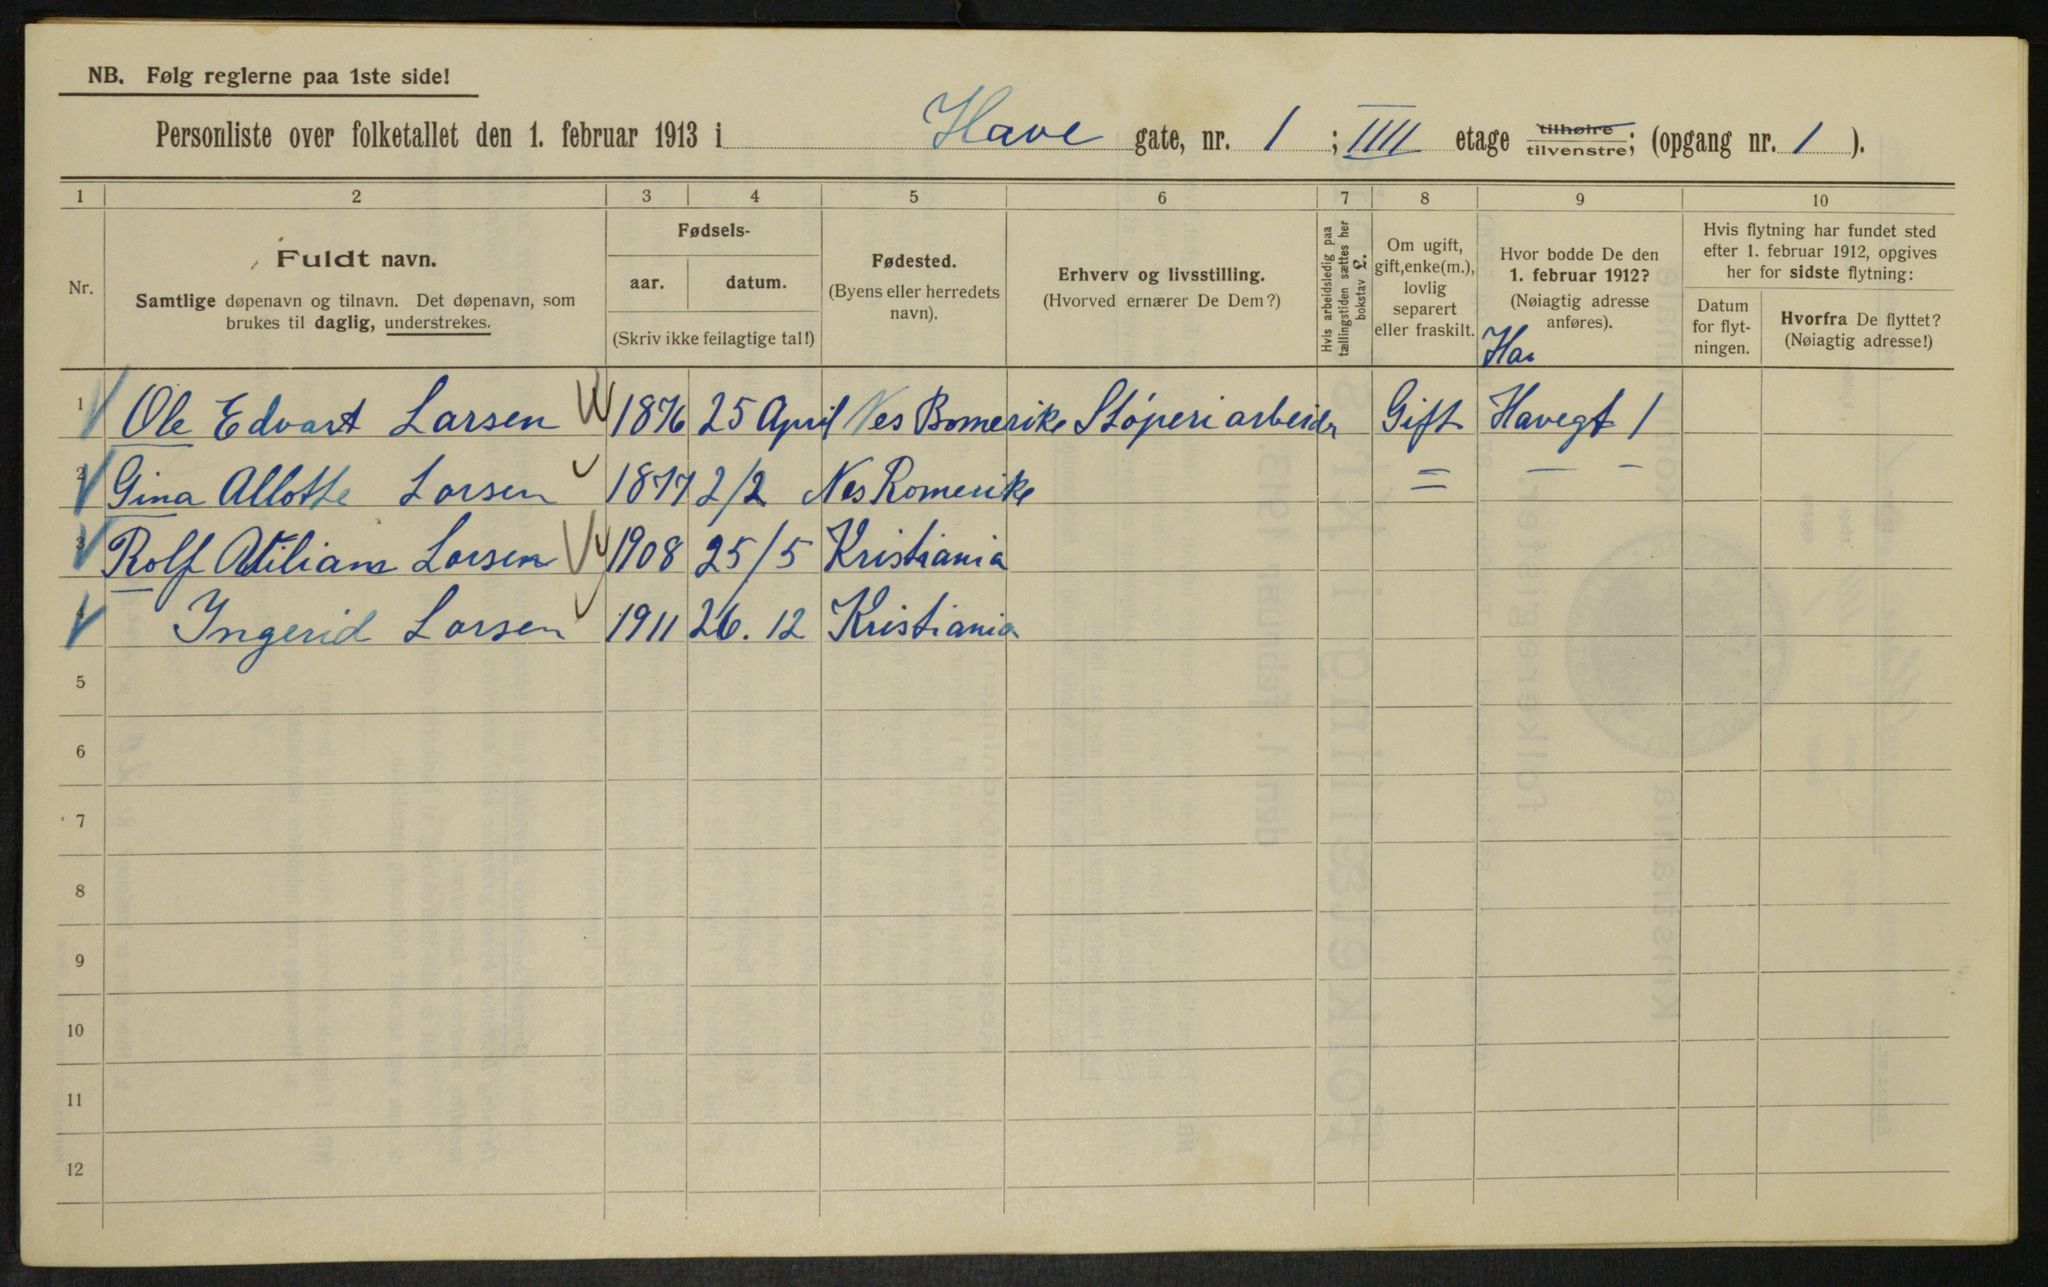 NB. Følg reglerne paa 1ste side!
Personliste over folketallet den 1. februar 1913 i Have gate, nr. 1 ; IIII etage tilhøire tilvenstre; (opgang nr. 1 ).
1 2 3 4 5 6 7 8 9 10
Nr.
Fuldt navn.
Samtlige døpenavn og tilnavn. Det døpenavn, som
brukes til daglig, understrekes.
Fødsels-
aar. datum.
(Skriv ikke feilagtige tal!)
Fødested.
(Byens eller herredets
navn).
Erhverv og livsstilling.
(Hvorved ernærer De Dem?)
Hvis arbeidsledig paa
tællingstiden sættes her
bokstav L.
Om ugift,
gift, enke(m.),
lovlig
separert
eller fraskilt.
Hvor bodde De den
1. februar 1912?
(Nøiagtig adresse
anføres).
Hvis flytning har fundet sted
efter 1. februar 1912, opgives
her for sidste flytning:
Datum
for flyt-
ningen.
Hvorfra De flyttet?
(Nøiagtig adresse!)
Hav
1 Ole Edvart Larsen 1876 25 April Nes Romerike Støperi arbeider Gift Havegt 1
2 Gina Allotte Larsen 1877 2/2 Nes Romerike = — –
3 Rolf Larsen 1908 25/5 Kristiania
4 Ingerid Larsen 1911 26. 12 Kristiania
5
6
7
8
9
10
11
12